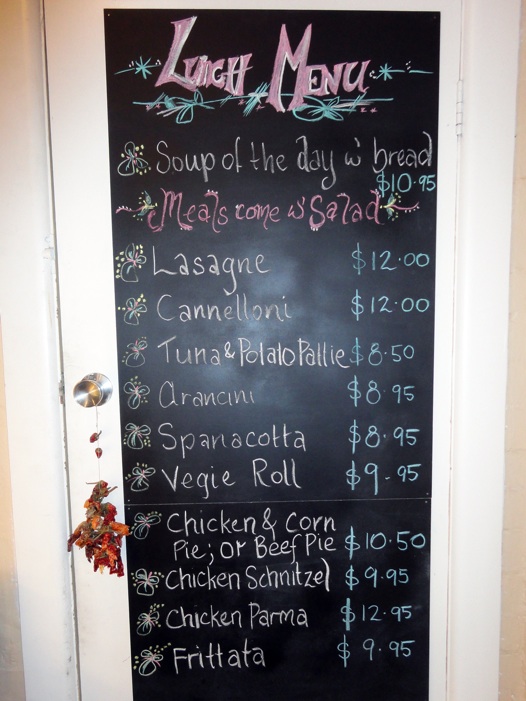 Lunch Menu
Soup of the day w' bread
$10.95
Meals come w' Salad
Lasagne $12.00
Cannelloni $12.00
Tuna & Potato Pattie $8.50
Arancini $8.95
Spanacotta $8.95
Vegie Roll $9.95
Chicken & Corn
Pie; or Beef Pie $10.50
Chicken Schnitzel $9.95
Chicken Parma $12.95
Frittata $9.95